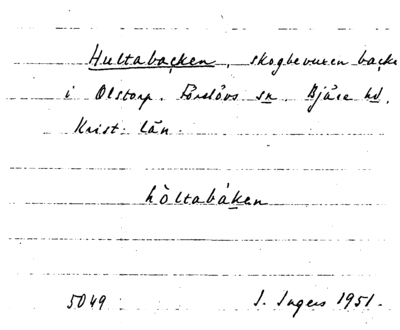 Hultabacken, skogbevuxen backe
i Olstorp. Förslövs sn. Bjäre hd.
Krist. län.
hòltabáken
5049 I. Ingers 1951.